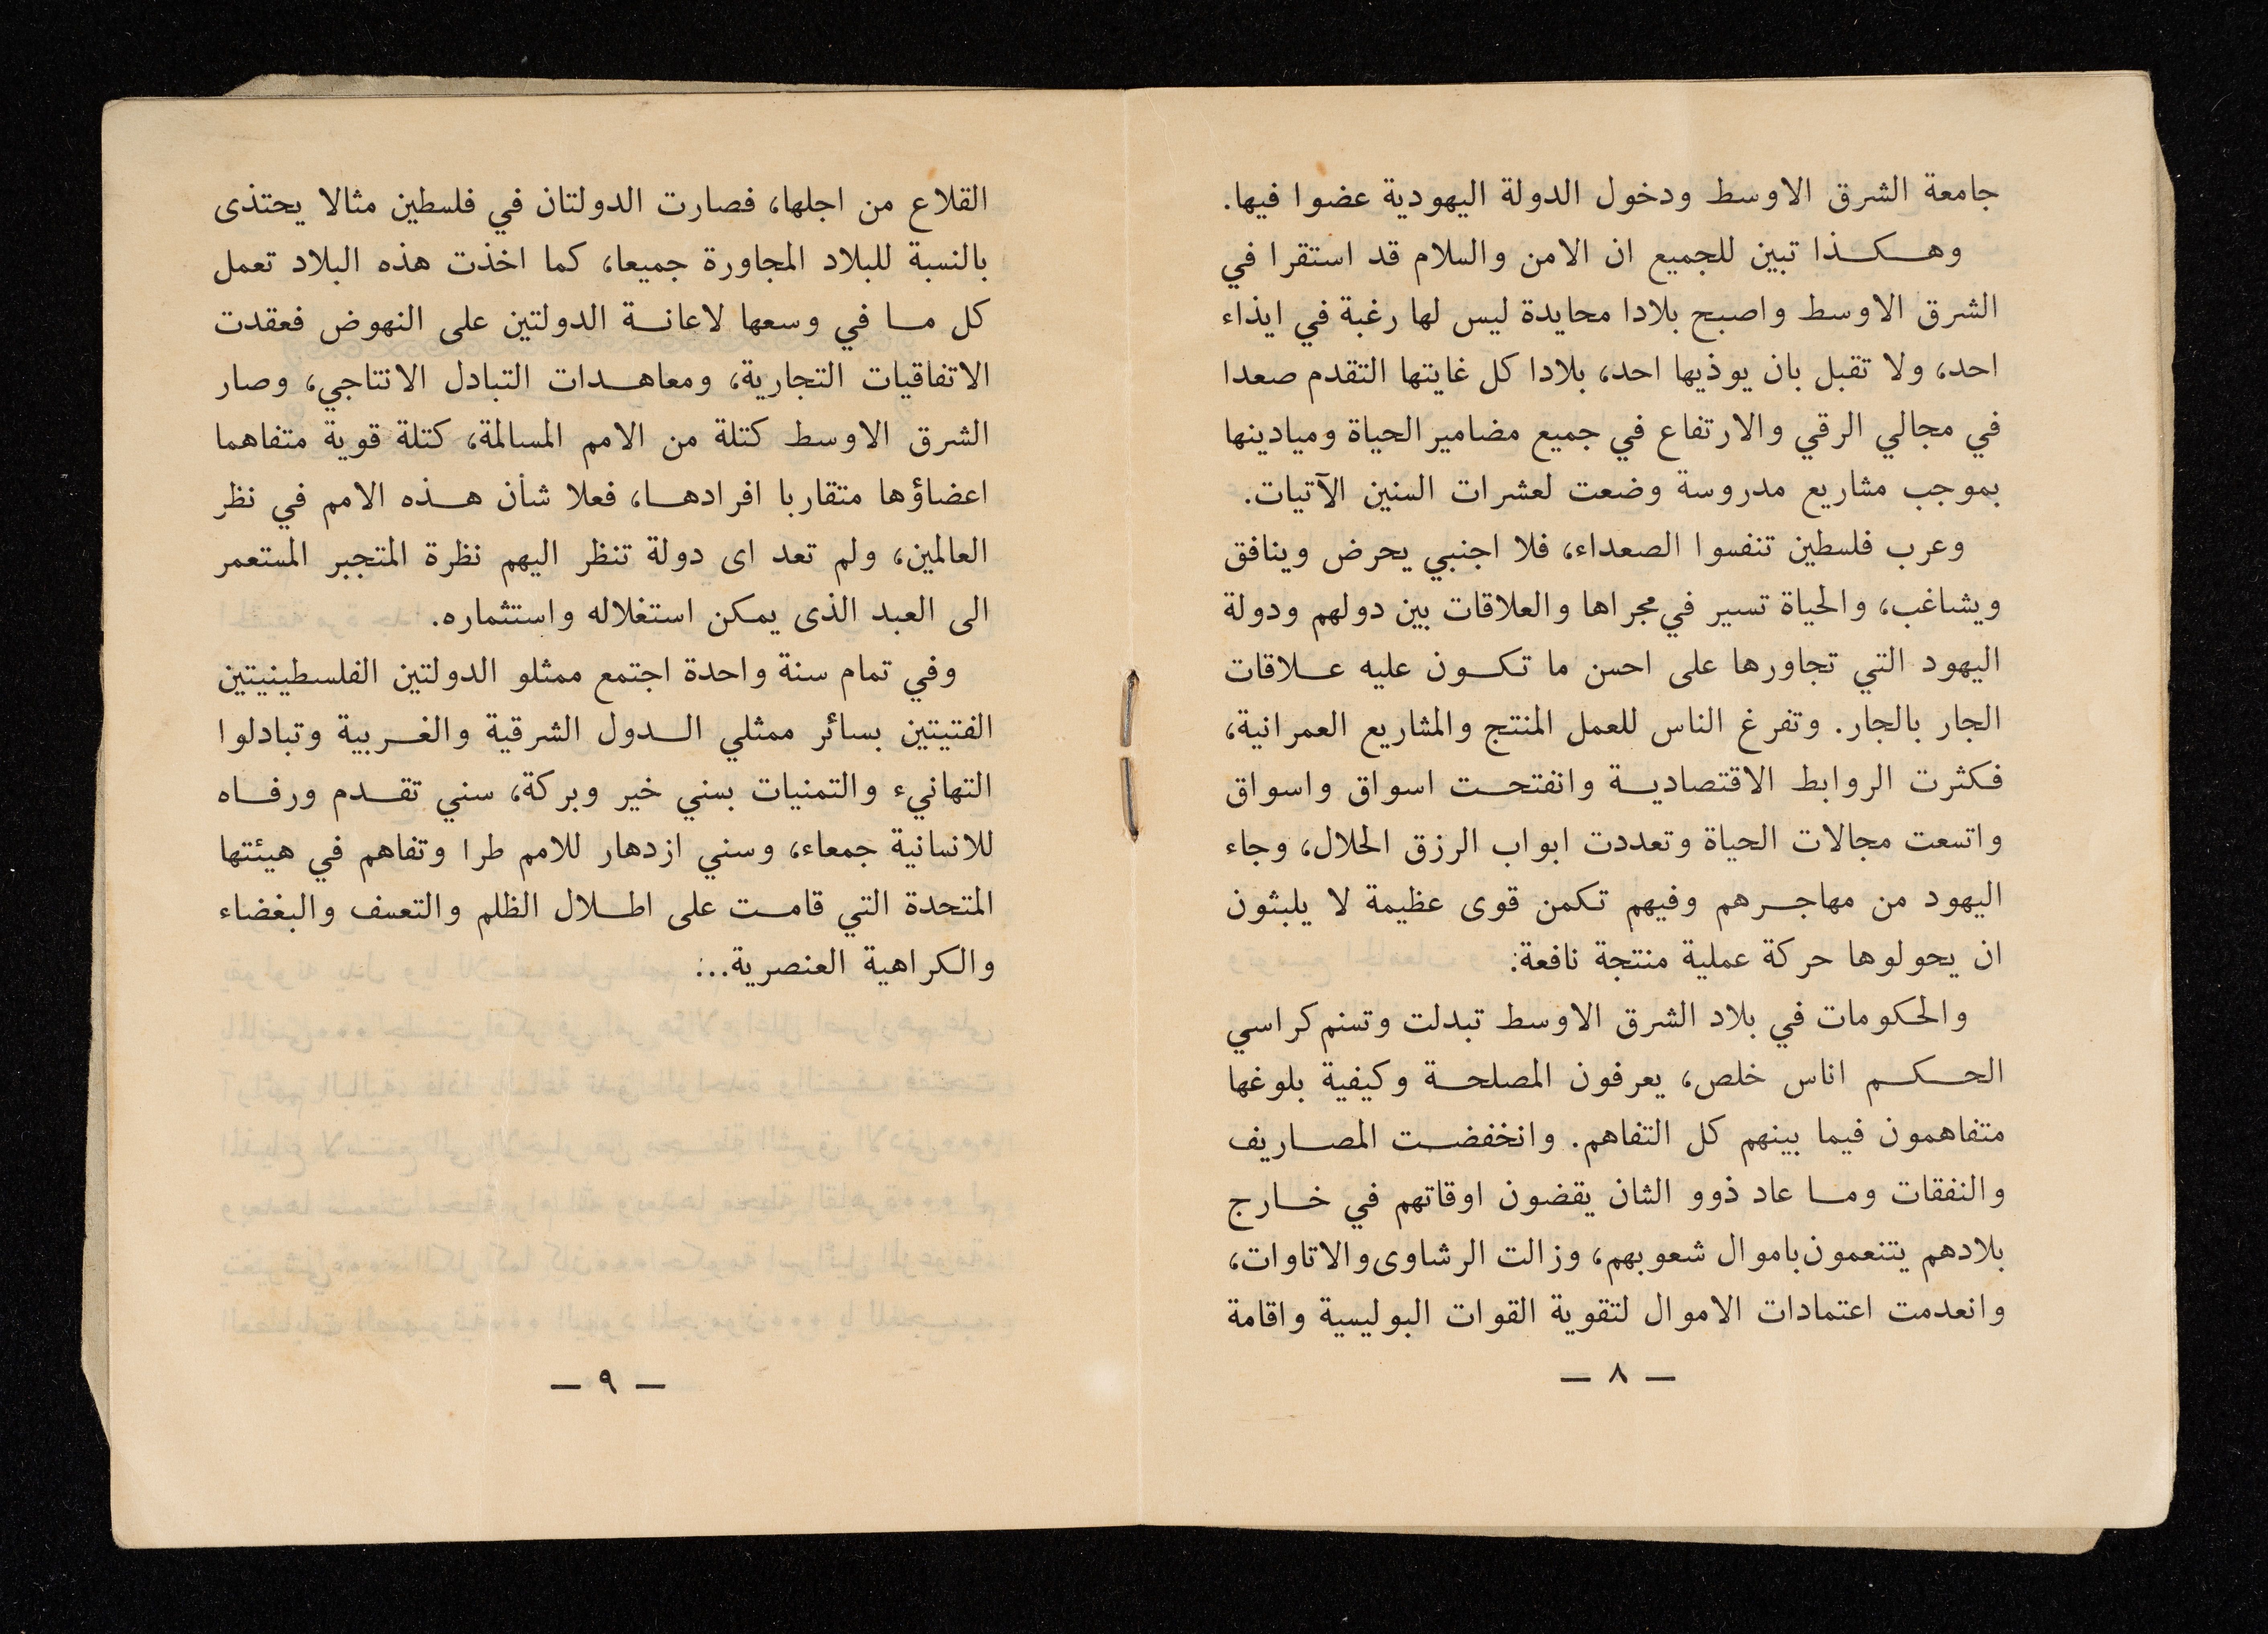 جامعة الشرق الاوسط ودخول الدولة اليهودية عضوا فيها.
وهكذا تبين للجميع ان الامن والسلام قد استقرا في
الشرق الاوسط واصبح بلادا محايدة ليس لها رغبة في ايذاء
احد، ولا تقبل بان يوذيها احد، بلادا كل غايتها التقدم صعدا
في مجالي الرقي والارتفاع في جميع مضامير الحياة وميادينها
بموجب مشاريع مدروسة وضعت لعشرات السنين الآتيات.
وعرب فلسطين تنفسوا الصعداء، فلا اجنبي يحرض وينافق
ويشاغب، والحياة تسير في مجراها والعلاقات بين دولهم ودولة
اليهود التي تجاورها على احسن ما تكون عليه علاقات
الجار بالجار. وتفرغ الناس للعمل المنتج والمشاريع العمرانية،
فكثرت الروابط الاقتصادية وانفتحت اسواق واسواق
واتسعت مجالات الحياة وتعددت ابواب الرزق الحلال، وجاء
اليهود من مهاجرهم وفيهم تكمن قوى عظيمة لا يلبثون
ان يحولوها حركة عملية منتجة نافعة.
والحكومات في بلاد الشرق الاوسط تبدلت وتسنم كراسي
الحكم اناس خلص، يعرفون المصلحة وكيفية بلوغها
متفاهمون فيما بينهم كل التفاهم. وانخفضت المصاريف
والنفقات وما عاد ذوو الشان يقضون اوقاتهم في خارج
بلادهم يتنعمون باموال شعوبهم، وزالت الرشاوى والاتاوات،
وانعدمت اعتمادات الاموال لتقوية القوات البوليسية واقامة
— ٨ —
القلاع من اجلها، فصارت الدولتان في فلسطين مثالا يحتذى
بالنسبة للبلاد المجاورة جميعا، كما اخذت هذه البلاد تعمل
كل ما في وسعها لاعانة الدولتين على النهوض فعقدت
الاتفاقيات التجارية، ومعاهدات التبادل الانتاجي، وصار
الشرق الاوسط كتلة من الامم المسالمة، كتلة قوية متفاهما
اعضاؤها متقاربا افرادها، فعلا شأن هذه الامم في نظر
العالمين، ولم تعد اى دولة تنظر اليهم نظرة المتجبر المستعمر
الى العبد الذى يمكن استغلاله واستثماره.
وفي تمام سنة واحدة اجتمع ممثلو الدولتين الفلسطينيتين
الفتيتين بسائر ممثلي الدول الشرقية والغربية وتبادلوا
التهانيء والتمنيات بسني خير وبركة، سني تقدم ورفاه
للانسانية جمعاء، وسني ازدهار للامم طرا وتفاهم في هيئتها
المتحدة التي قامت على اطلال الظلم والتعسف والبغضاء
والكراهية العنصرية...
— ٩ —